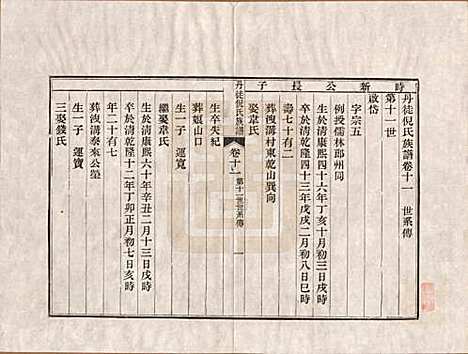 丹徒倪氏族譜卷十二　世系傳
第十一世
時新公長子
啟岱
字宗五
例授儒林郎州同
生於清康熙四十六年丁亥十月初三日戌時
卒於清乾隆四十三年戊戌二月初八日巳時
壽七十有二
葬洩溝村東乾山巽向
娶韋氏
丹徒倪氏族譜
卷十二
第十一世世系傳
一
生卒失紀
葬嫗山口
生一子　運寬
繼娶韋氏
生於清康熙六十年辛丑二月十三日戌時
卒於清乾隆十二年丁卯正月初七日亥時
年二十有七
葬洩溝泰來公塋
生一子　運寶
三娶錢氏